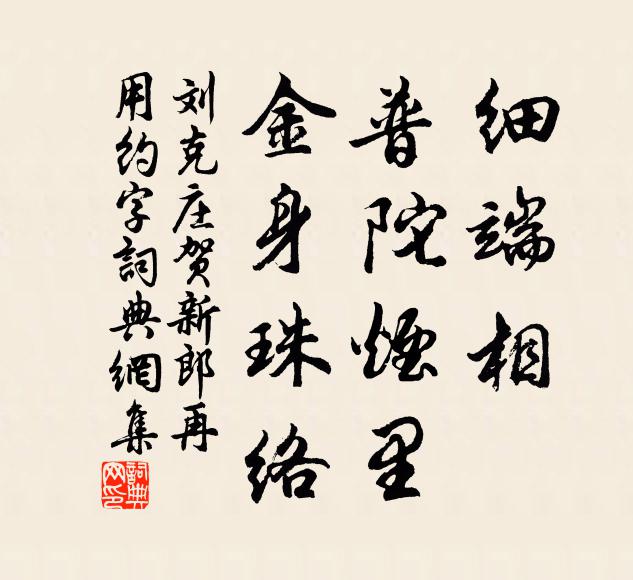 细端相
普陀烟里
金身珠络
刘克庄贺新郎再
用约字詞典網集
詞典网印